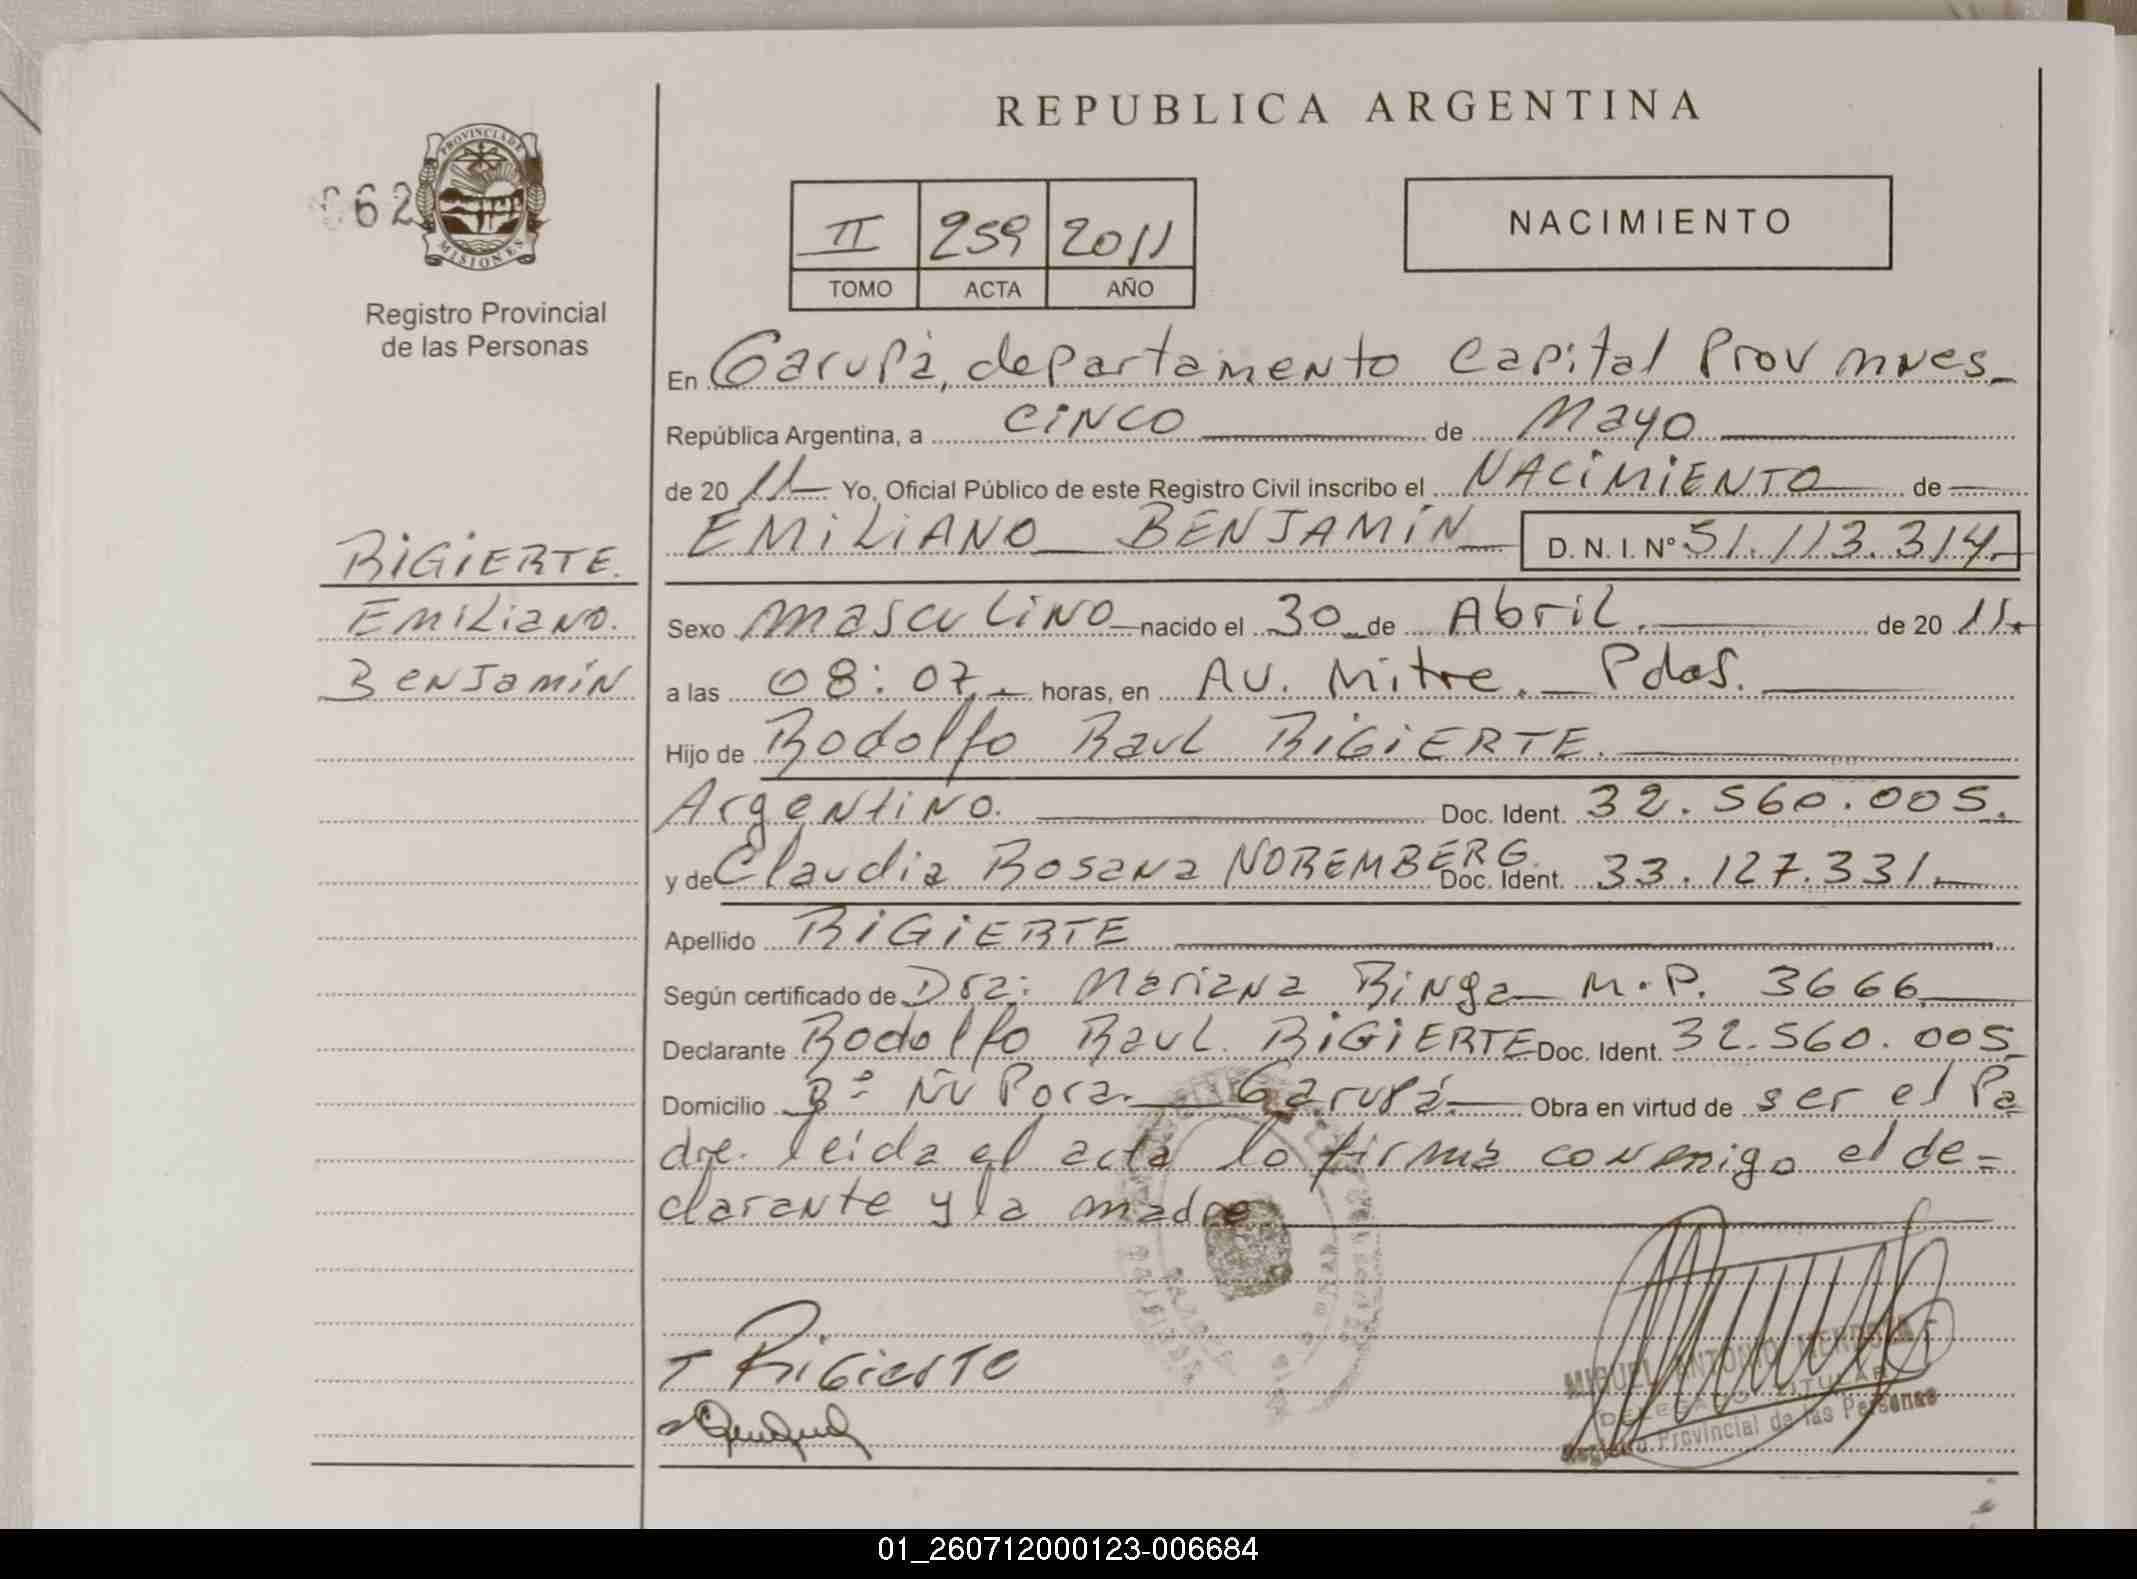 REPUBLICA ARGENTINA
PROVINCIA DE
MISIONES
062
Registro Provincial
de las Personas
II 259 2011
TOMO ACTA AÑO
NACIMIENTO
En Garupá, departamento Capital Prov mnes
República Argentina, a cinco de Mayo
de 20 11 Yo, Oficial Público de este Registro Civil inscribo el NACIMIENTO de
EMILIANO BENJAMIN D. N. I. Nº 51.113.314
RIGIERTE.
Emiliano.
Benjamin
Sexo masculino nacido el 30 de Abril. de 20 11.
a las 08:07 horas, en Av. Mitre. Pdas.
Hijo de Rodolfo Raul RIGIERTE.
Argentino. Doc. Ident. 32.560.005.
y de Claudia Rosana NOREMBERG. Doc. Ident. 33.127.331.
Apellido RIGIERTE
Según certificado de Dra: Mariana Ringa M.P. 3666
Declarante Rodolfo Raul. RIGIERTE Doc. Ident. 32.560.005
Domicilio Bº Ñu Pora. Garupá. Obra en virtud de ser el Pa
dre. leida el acta lo firma conmigo el de=
clarante y la madre
Rigierte
MIGUEL ANTONIO
DELEGADO TITULAR
Registro Provincial de las Personas
01_260712000123-006684